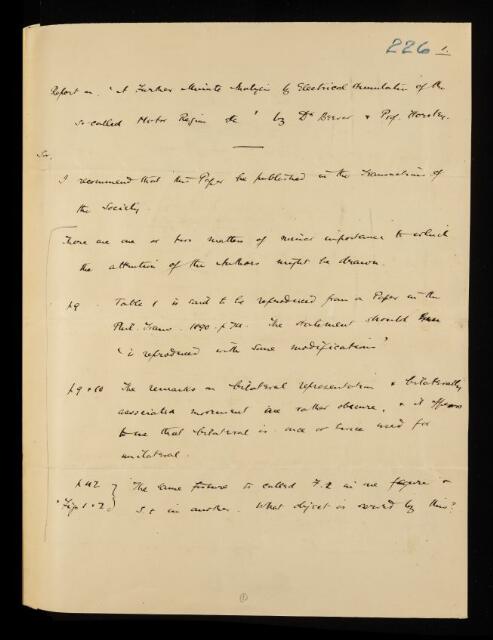 226 1.
Report on 'A Further Minute Analysis by Electrical Stimulation of the
so-called Motor Region &c' by Dr Beevor & Prof. Horsley.
Sir,
I recommend that this Paper be published in the Transactions of
the Society.
There are one or two matters of minor importance to which
the attention of the Authors might be drawn.
p 9. Table 1 is said to be reproduced from a Paper in the
Phil. Trans. 1890. p. The statement should
'is reproduced with some modifications'
p 9 & 10 The remarks on bilateral representation & bilaterally
associated movement are rather obscure, & it appears
to me that bilateral is once or twice used for
unilateral.
p 42 } The same is called F.2 in one figure &
'Figs 1 & 2 } in another. What object is served by this?
1